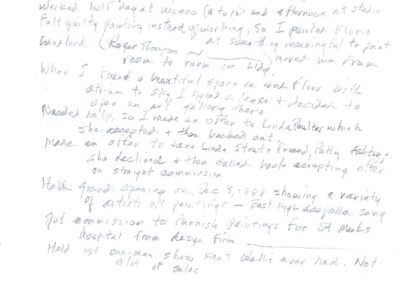 Worked half day at Women (8 to 12) and afternoon at studio
Felt guilty painting instead of working, so I painted Florio
as something meaningful to paint
Landlord (Roger Thompson and ____) moved him from
room to room in bldg.
When I found a beautiful space on 2nd floor with
atrium to sky I signed a lease & decided to
open an art gallery there
Needed help, so I made an offer to Linda Poulter which
she accepted & then backed out
Made an offer to Jane Linda Strait friend, Patty Ashton,
she declined & then called back accepting offer
on straight commission
Held grand opening on Dec 3, 1988 showing a variety
of artists oil paintings - East High Acapella sang
Got commission to furnish paintings for St Marks
Hospital from design firm ____
Held 1st one-man show Kent Wallis ever had. Not
a lot of sales